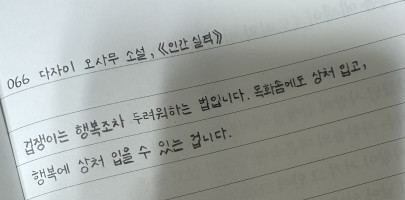 066 다자이 오사무 소설, 《인간 실격》
겁쟁이는 행복조차 두려워하는 법입니다. 목화솜에도 상처 입고,
행복에 상처 입을 수 있는 겁니다.